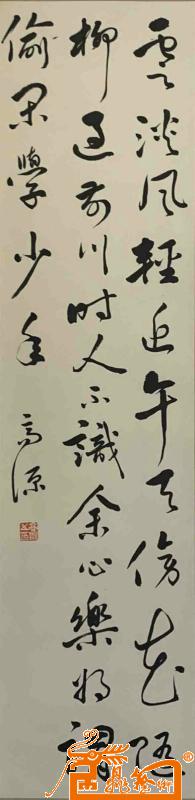 雲淡風輕近午天傍花隨
柳過前川時人不識余心樂將謂
偷閑學少年 高源